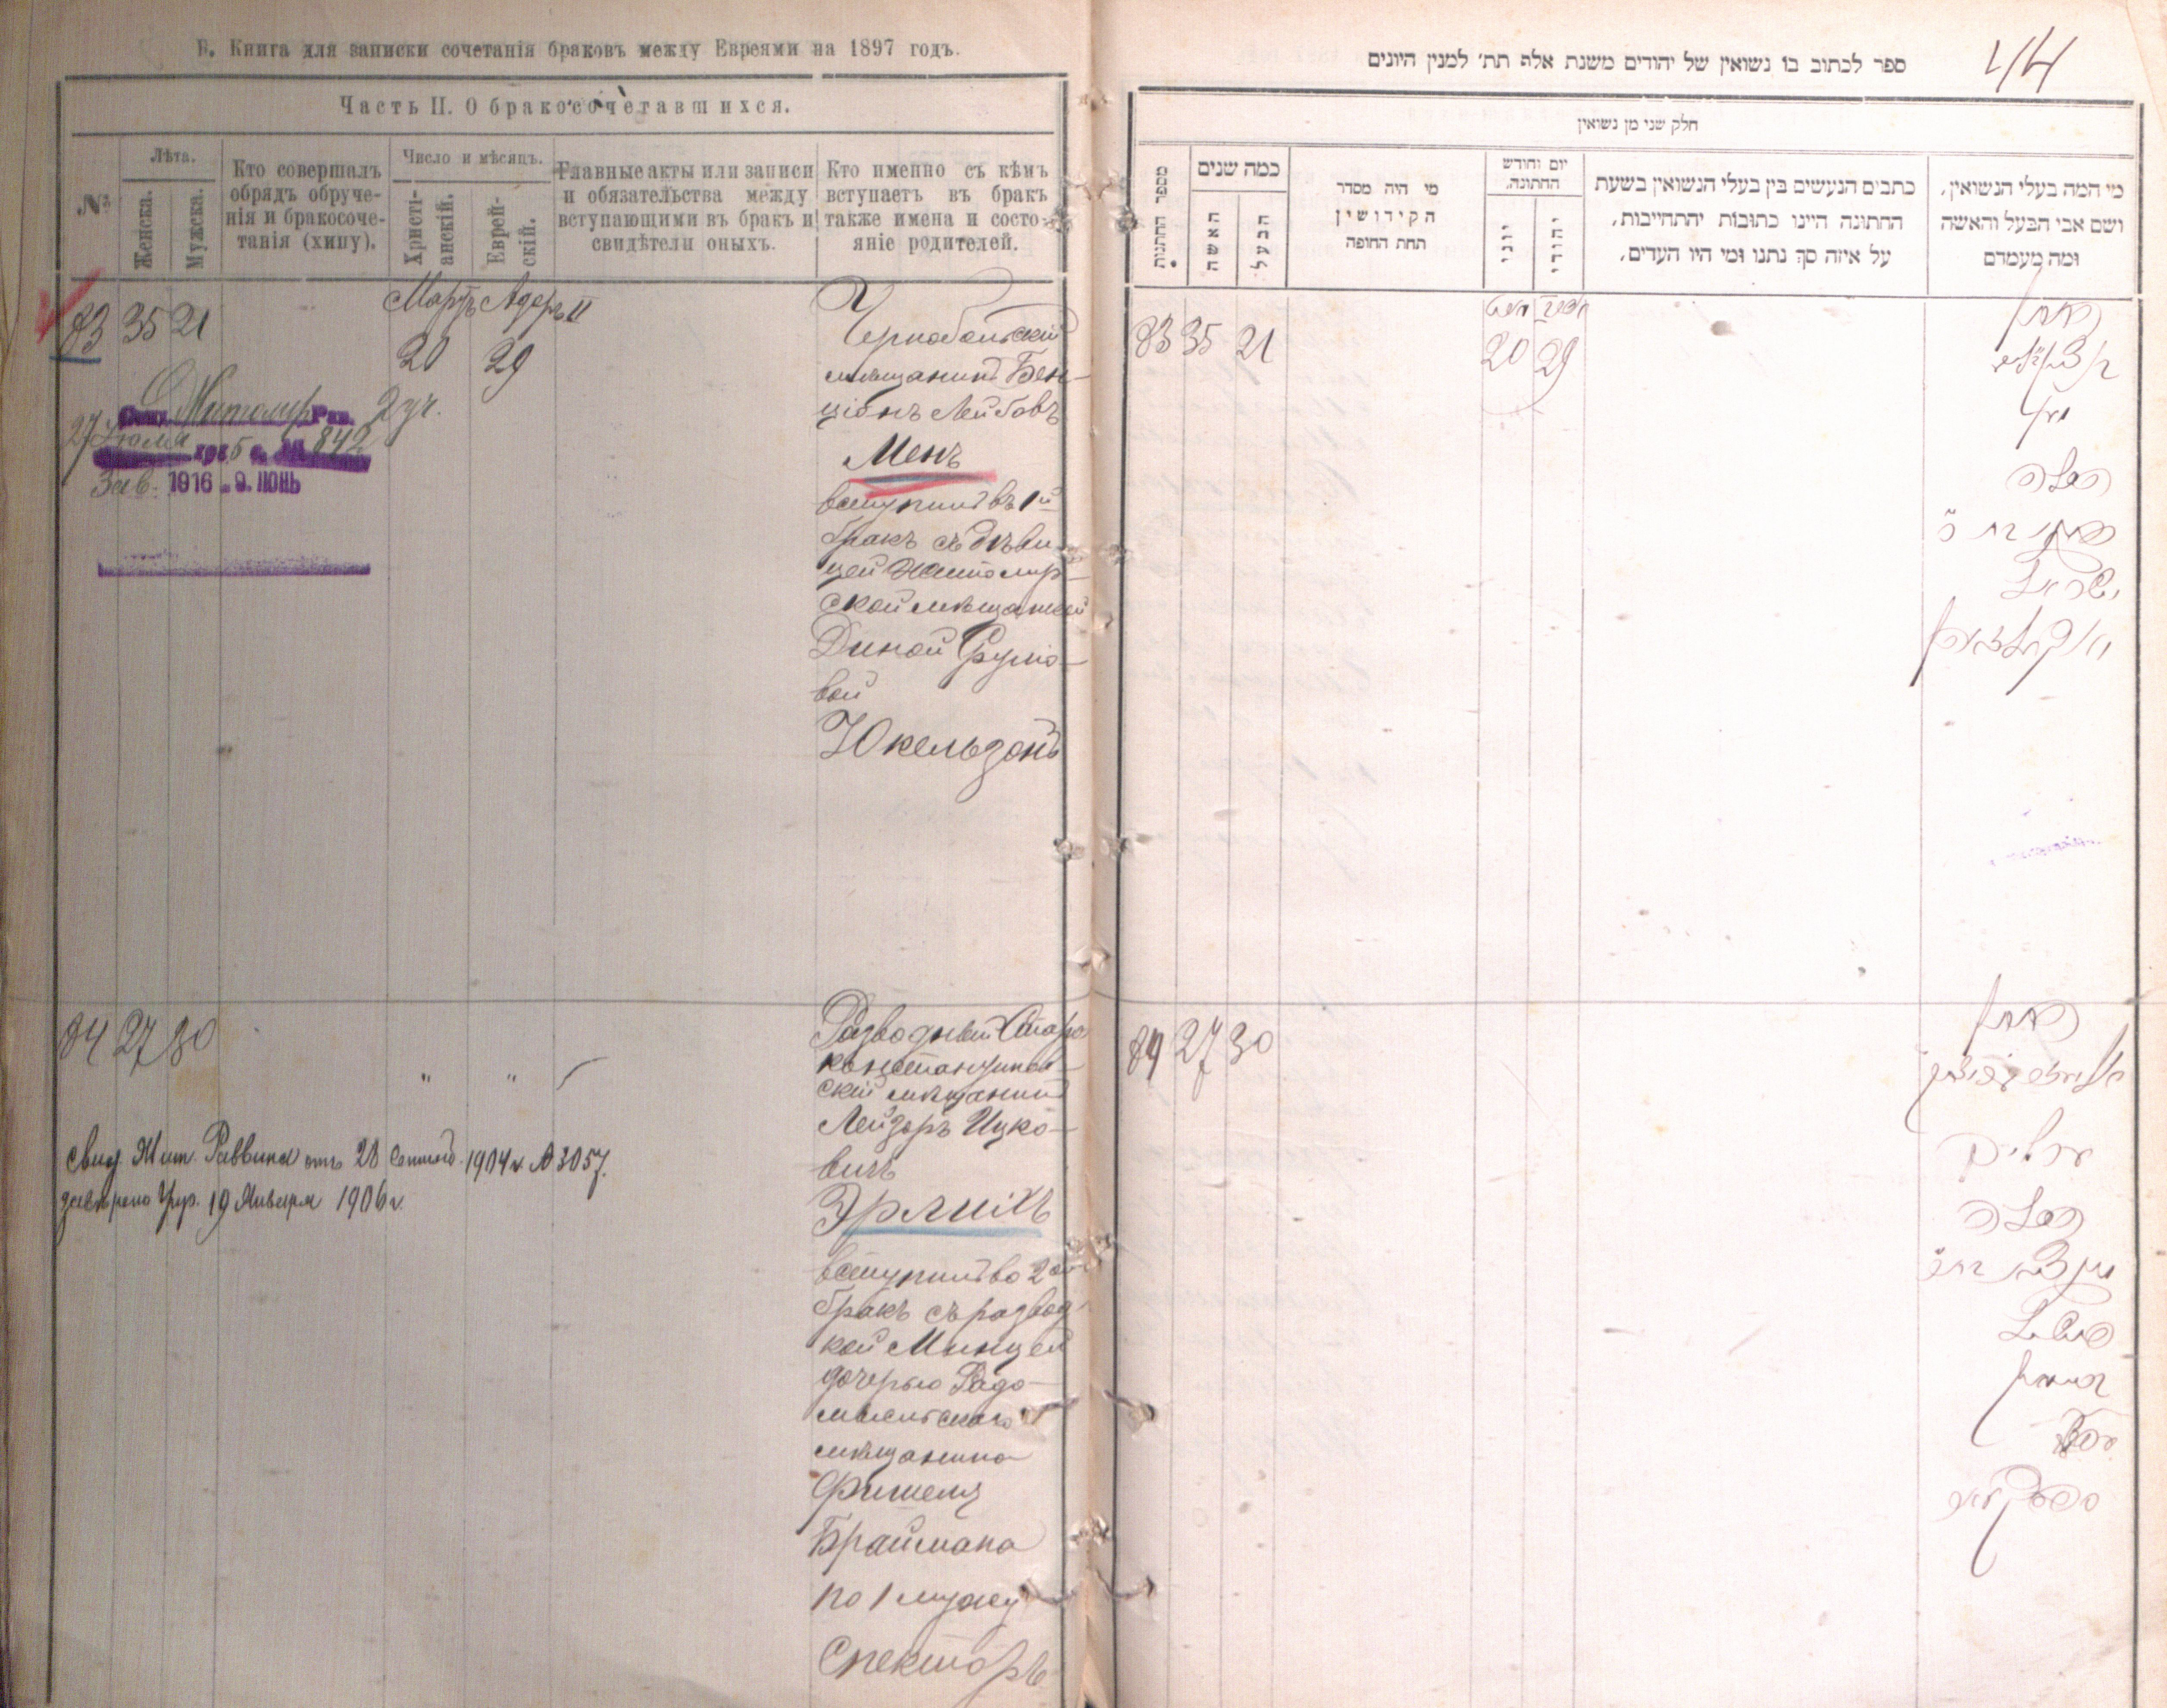 Б. Книга для записки сочетанія браковъ между Евреями на 1897 годъ.
Часть II. О бракосочетавшихся.
№
Лѣта.
Женска.
Мужска.
Кто совершалъ
обрядъ обруче-
нія и бракосоче-
танія (хипу).
Число и мѣсяцъ.
Христі-
анскій.
Еврей-
скій.
Главные акты или записи
и обязательства между
вступающими въ бракъ и
свидѣтели оныхъ.
Кто именно съ кѣмъ
вступаетъ въ бракъ
также имена и состо-
яніе родителей.
83 35 21
Мартъ Адеръ II
20 29
Чернобыльскій
мѣщанинъ Бен-
ціонъ Лейбовъ
Менъ
вступилъ въ 1й
бракъ съ дѣви-
цей Житомир-
ской мѣщанкой
Диной Сруло-
вой
Юкельзонъ
Житомир Рав. 2 уч.
27 5 г. № 842
Зав. 1916 г. 9. ІЮНЬ
84 27 30
" "
Разводный Старо
константинов-
скій мѣщанинъ
Лейзоръ Ицко-
вичъ
Эрлихъ
вступилъ во 2ой
бракъ съ развод
кой Минцей
дочерью Радо-
мысльскаго
мѣщанина
Фишеля
Браймана
по 1 мужу
Спекторъ
Свид. Жит. Раввина отъ 28 Сентяб. 1904 г. № 3057.
завѣрено Упр. 19 Января 1906 г.
ספר לכתוב בו נשואין של יהודים משנת אלף תת' למנין היונים
44
חלק שני מן נשואין
מספר החתנות
כמה שנים
האשה
הבעל
מי היה מסדר
הקידושין
תחת החופה
יום וחודש
החתונה.
יוני
יהודי
כתבים הנעשים בין בעלי הנשואין בשעת
החתונה היינו כתובות יהתחייבות,
על איזה סך נתנו ומי היו העדים,
מי המה בעלי הנשואין,
ושם אבי הבעל והאשה
ומה מעמדם
83 35 21
20 29
החתן
מען
הכלה
ישראל
יאקילזאהן
84 27 30
החתן
ערליך
הכלה
פישל
בריימאן
ספעקטאר